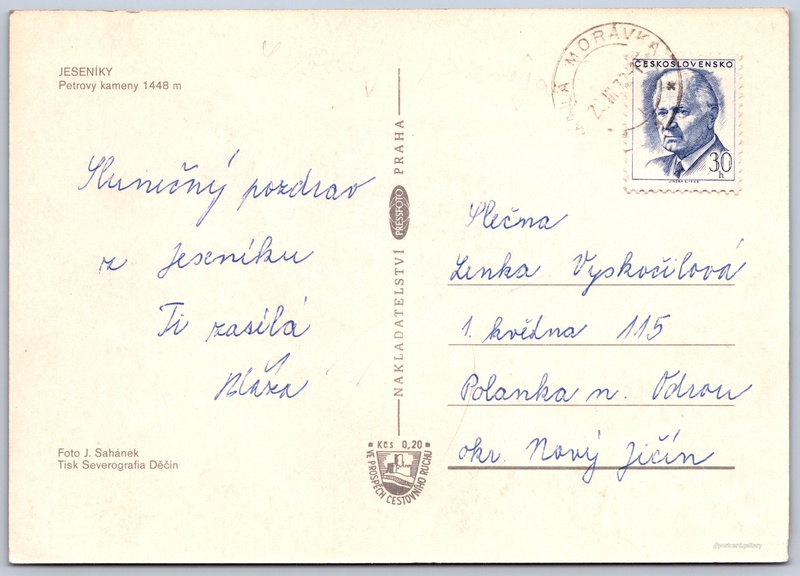 JESENÍKY
Petrovy kameny 1448 m
Slunečný pozdrav
z Jeseníku
Ti zasílá
Blážа
NAKLADATELSTVÍ PRESSFOTO PRAHA
Kčs 0,20
VE PROSPĚCH CESTOVNÍHO RUCHU
Foto J. Sahánek
Tisk Severografia Děčín
MALÁ MORÁVKA
ČESKOSLOVENSKO
30
h
Slečna
Lenka Vyskočilová
1. května 115
Polanka n. Odrou
okr. Nový Jičín